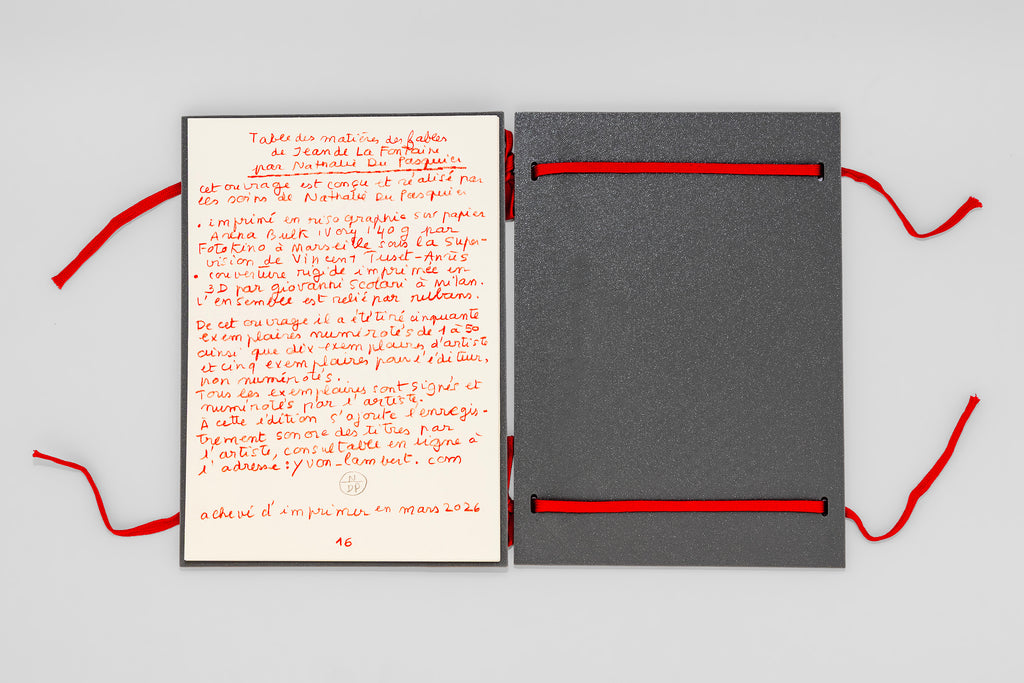 Table des matières des fables
de Jean de La Fontaine
par Nathalie Du Pasquier
cet ouvrage est conçu et réalisé par
les soins de Nathalie Du Pasquier
• imprimé en risographie sur papier
Arena Bulk IVory 140 g par
Fotokino à Marseille sous la super-
vision de Vincent Tuset-Anrès
• couverture rigide imprimée en
3D par giovanni Scolari à Milan.
L'ensemble est relié par rubans.
De cet ouvrage il a été tiré cinquante
exemplaires numérotés de 1 à 50
ainsi que dix exemplaires d'artiste
et cinq exemplaires pour l'éditeur,
non numérotés.
Tous les exemplaires sont signés et
numérotés par l'artiste.
A cette édition s'ajoute l'enregis-
trement sonore des titres par
l'artiste, consultable en ligne à
l'adresse : yvon-lambert.com
N
DP
achevé d'imprimer en mars 2026
16